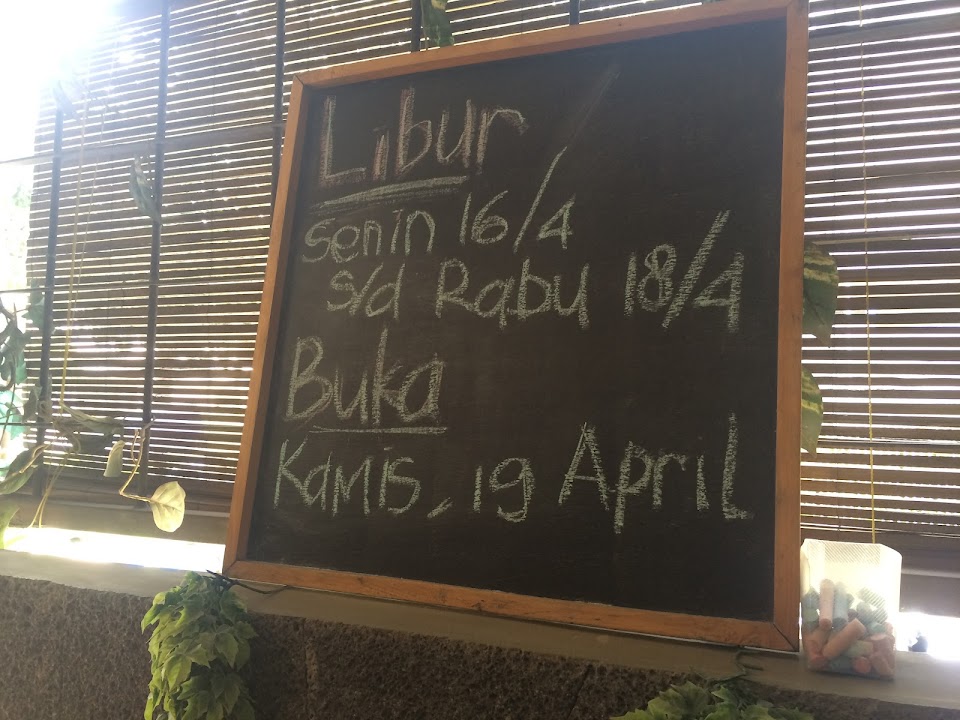 Libur
Senin 16/4
s/d Rabu 18/4
Buka
Kamis, 19 April